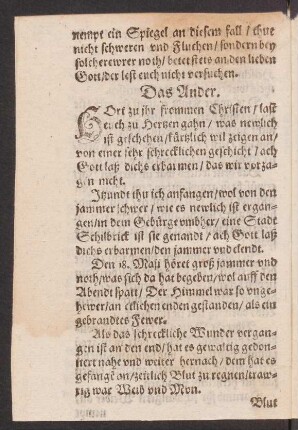 nempt ein Spiegel an diesem fall / thut
nicht schweren vnd Fluchen / sondern bey
solcher ewrer noth / betet stets an den lieben
Gott / der lest euch nicht versuchen.
Das Ander.
HOrt zu jhr frommen Christen / last
euch zu Hertzen gahn / was newlich
ist geschehen / kürtzlich wil zeigen an /
von einer sehr schrecklichen geschicht / ach
Gott laß dichs erbarmen / das wir verza-
gen nicht.
Itzundt thu ich anfangen / wol von den
jammer schwer / wie es newlich ist ergan-
gen / in dem Gebürge vmbher / eine Stadt
Schilbrick ist sie genandt / ach Gott laß
dichs erbarmen / den jammer vnd elendt.
Den 18. Maij höret groß jammer vnd
noth / was sich da hat begeben / wol auff den
Abendt spatt / Der Himmel war so vnge-
hewer / an etlichen enden gestanden / als ein
gebrandtes Fewer.
Als das schreckliche Wunder vergan-
gen ist an den end / hat es gewaltig gedon-
nert nahe vnd weiter hernach / dem hat es
gefangē an / zeitlich Blut zu regnen / traw-
rig war Weib vnd Mon.
Blut